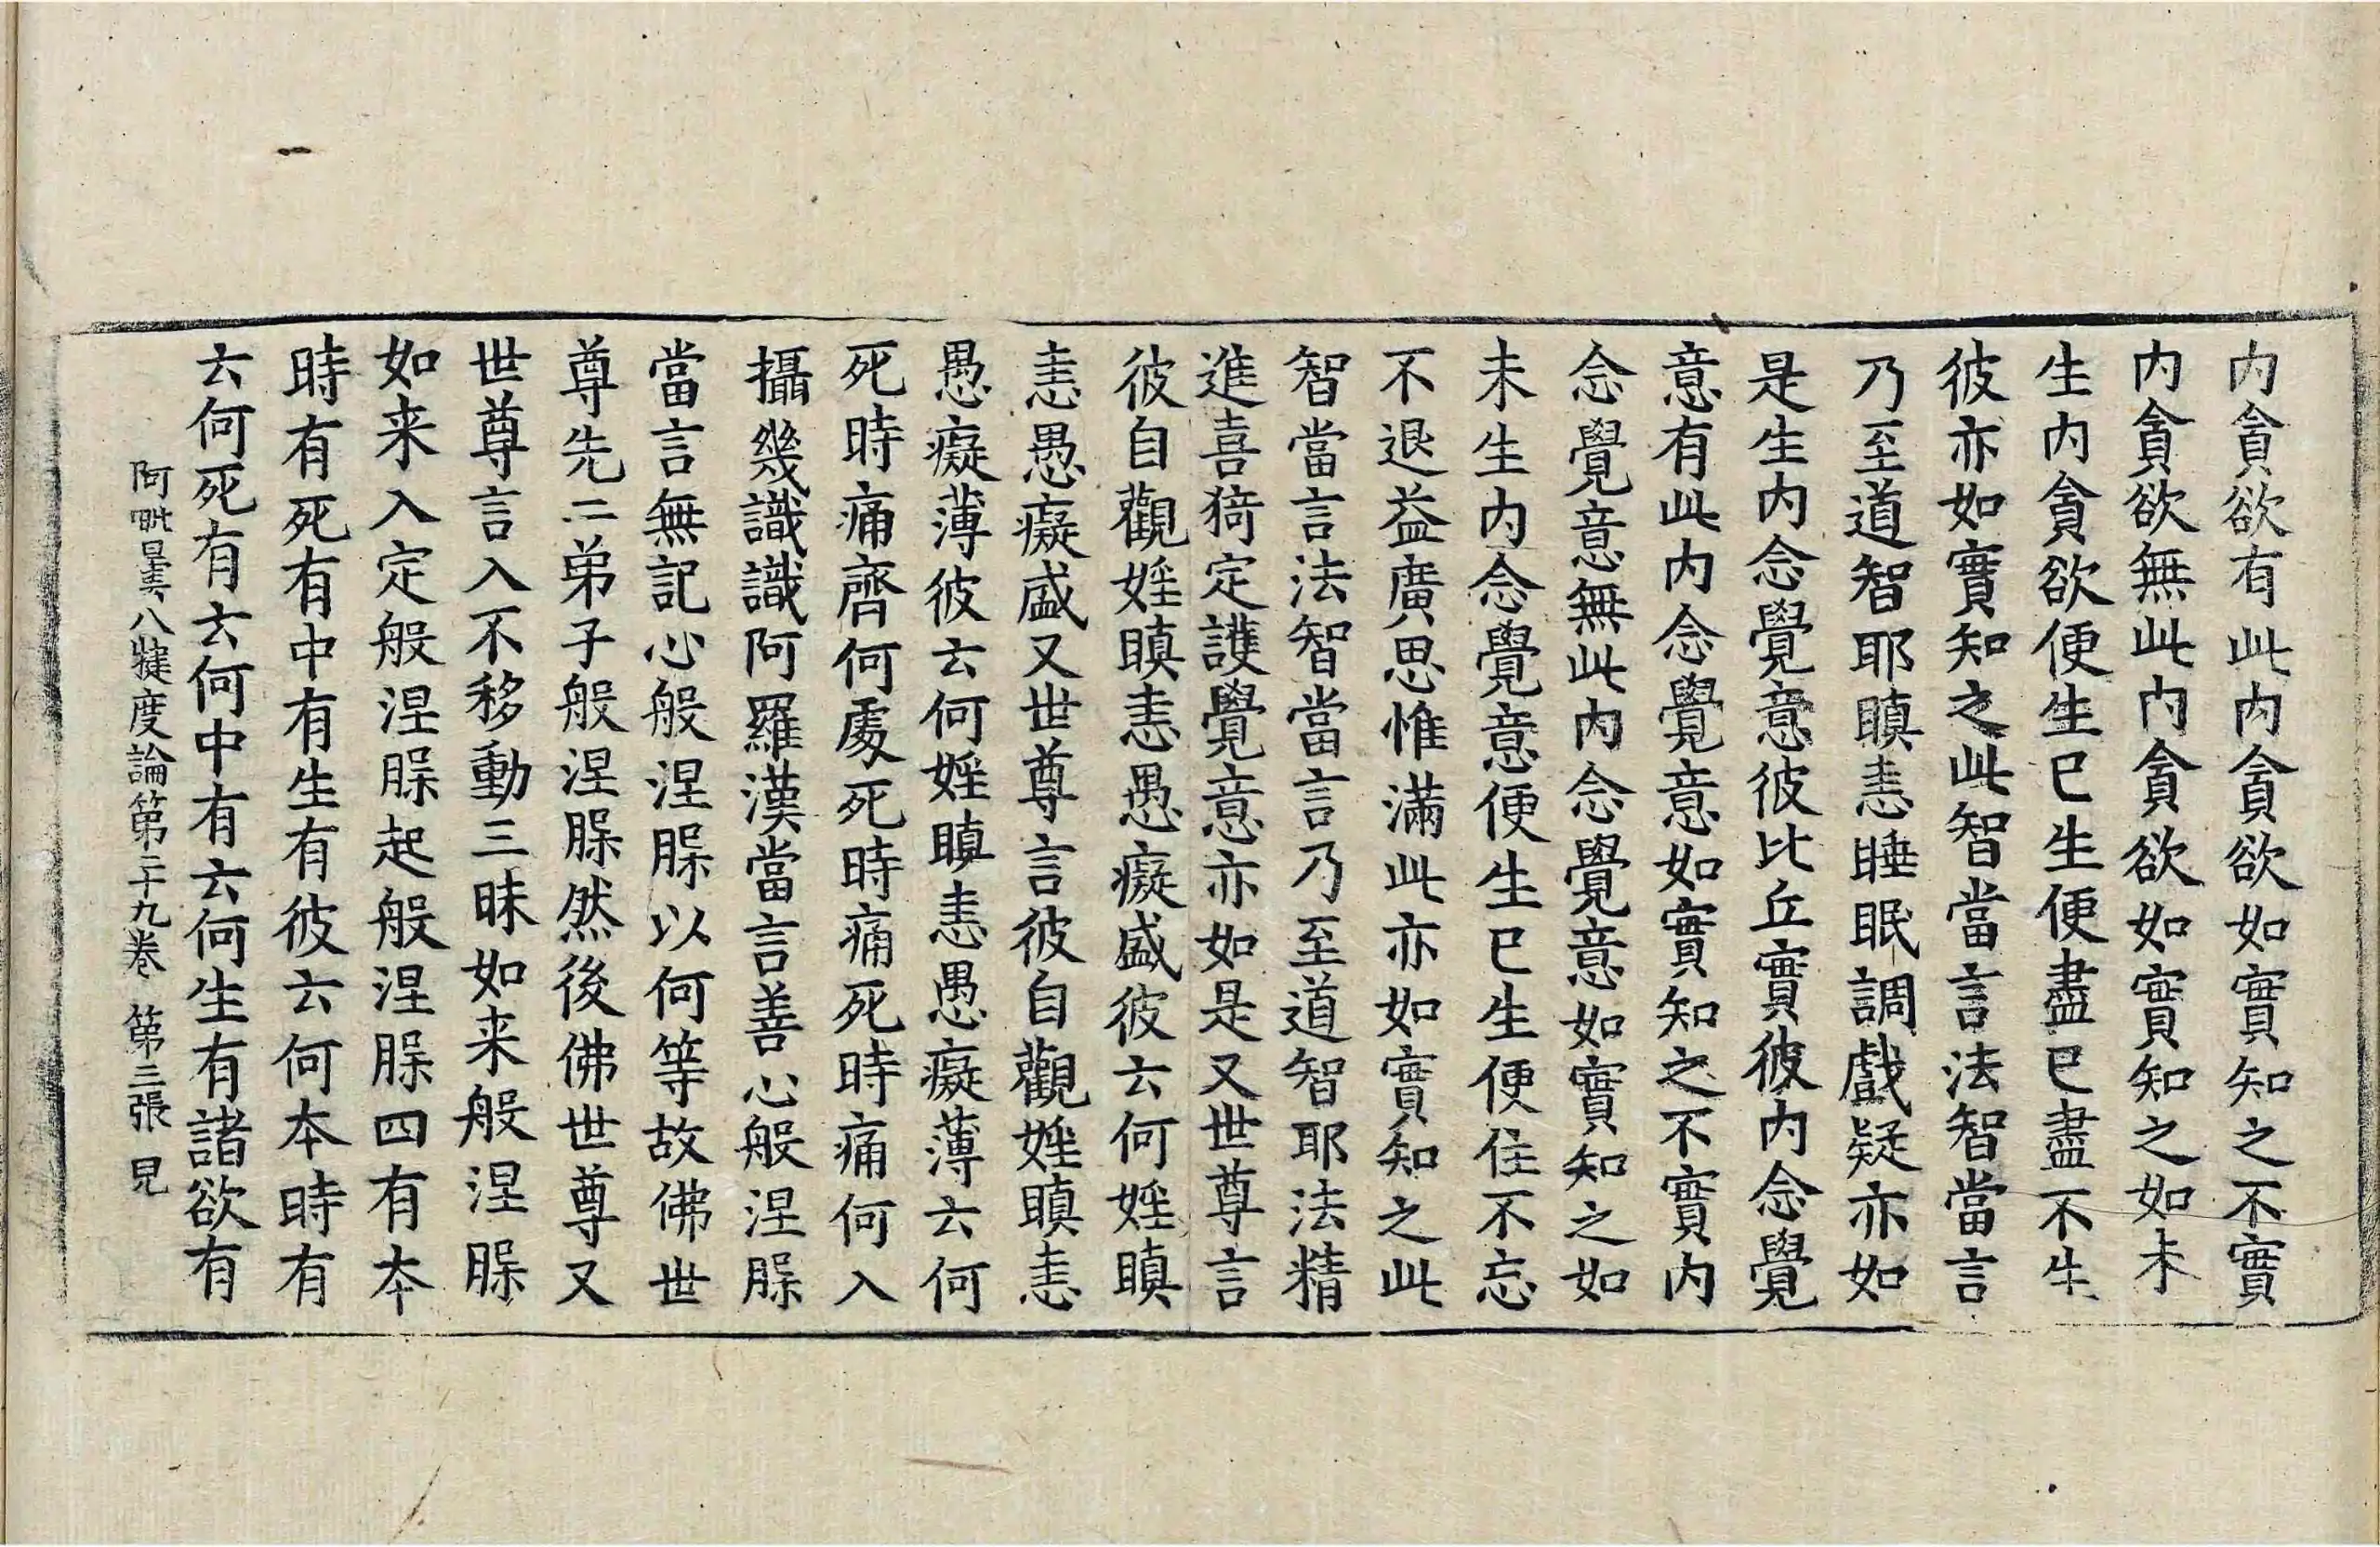 内貪欲有此内貪欲如實知之不實
内貪欲無此内貪欲如實知之如未
生内貪欲便生已生便盡已盡不生
彼亦如實知之此智當言法智當言
乃至道智耶瞋恚睡眠調戲疑亦如
是生内念覺意彼比丘實彼内念覺
意有此内念覺意如實知之不實内
念覺意無此内念覺意如實知之如
未生内念覺意便生已生便住不忘
不退益廣思惟滿此亦如實知之此
智當言法智當言乃至道智耶法精
進喜猗定護覺意亦如是又世尊言
彼自觀婬瞋恚愚癡盛彼云何婬瞋
恚愚癡盛又世尊言彼自觀婬瞋恚
愚癡薄彼云何婬瞋恚愚癡薄云何
死時痛齊何處死時痛死時痛何入
攝幾識識阿羅漢當言善心般涅槃
當言無記心般涅槃以何等故佛世
尊先二弟子般涅槃然後佛世尊又
世尊言入不移動三昧如来般涅槃
如来入定般涅槃起般涅槃四有本
時有死有中有生有彼云何本時有
云何死有云何中有云何生有諸欲有
阿毗曇八犍度論第二十九卷 第三張 皃